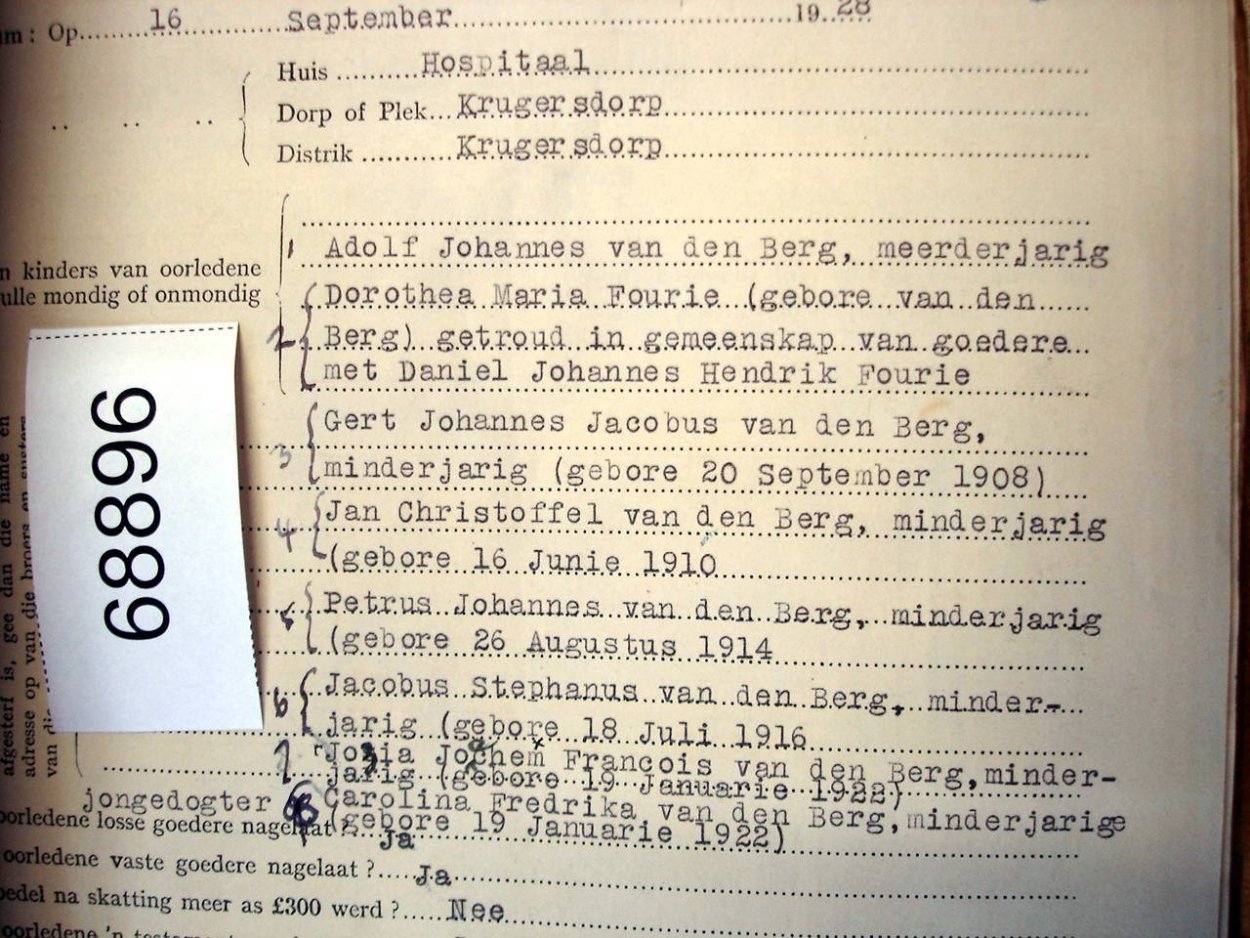 um: Op 16 September 19 28
Huis Hospitaal
Dorp of Plek Krugersdorp
Distrik Krugersdorp
1 Adolf Johannes van den Berg, meerderjarig
n kinders van oorledene
ulle mondig of onmondig
2 Dorothea Maria Fourie (gebore van den
Berg) getroud in gemeenskap van goedere
met Daniel Johannes Hendrik Fourie
3 Gert Johannes Jacobus van den Berg,
minderjarig (gebore 20 September 1908)
4 Jan Christoffel van den Berg, minderjarig
(gebore 16 Junie 1910
5 Petrus Johannes van den Berg, minderjarig
(gebore 26 Augustus 1914
6 Jacobus Stephanus van den Berg, minder-
jarig (gebore 18 Juli 1916
7 Jochem Francois van den Berg, minder-
jarig (gebore 19 Januarie 1922)
jongedogter 8 Carolina Fredrika van den Berg, minderjarige
(gebore 19 Januarie 1922)
oorledene losse goedere nagelaat? Ja
oorledene vaste goedere nagelaat? Ja
oedel na skatting meer as £300 werd? Nee
oorledene 'n testament
68896
afgesterf is, gee dan die name en
adresse op van die broers en susters
van die